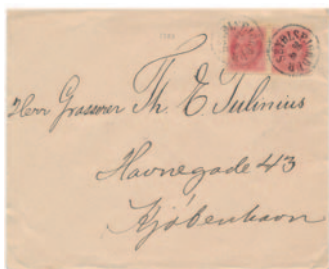 Herr Grosserer Th. E. Tulinius
Havnegade 43
Kjøbenhavn